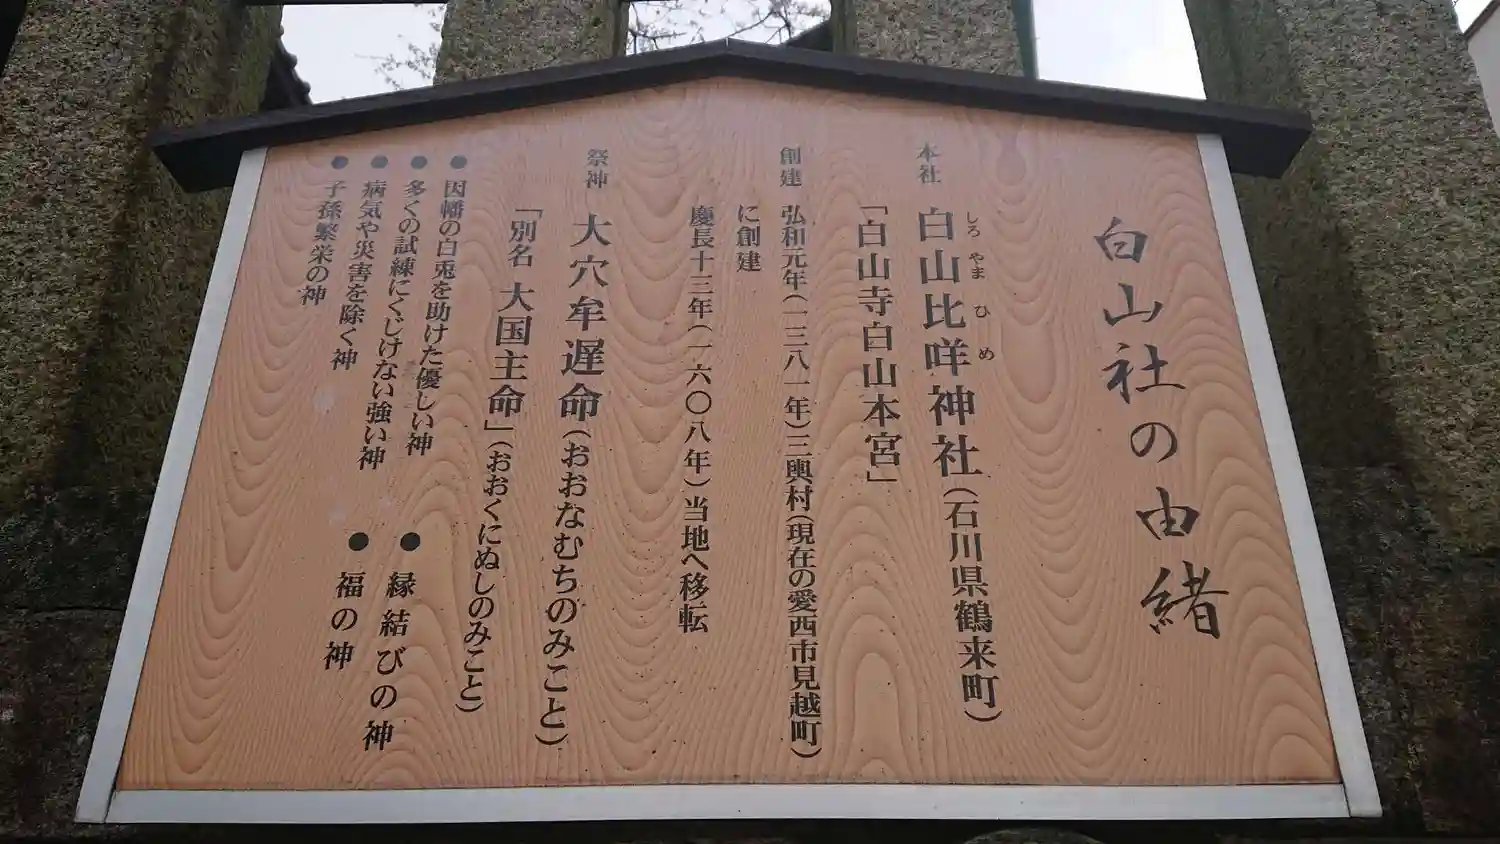 白山社の由緒
本社 白山比咩神社(石川県鶴来町)
しろ やま ひ め
「白山寺白山本宮」
創建 弘和元年(一三八一年)三輿村(現在の愛西市見越町)
に創建
慶長十三年(一六〇八年)当地へ移転
祭神 大穴牟遅命(おおなむちのみこと)
「別名 大国主命」(おおくにぬしのみこと)
●因幡の白兎を助けた優しい神
●多くの試練にくじけない強い神
●病気や災害を除く神
●子孫繁栄の神
●縁結びの神
●福の神